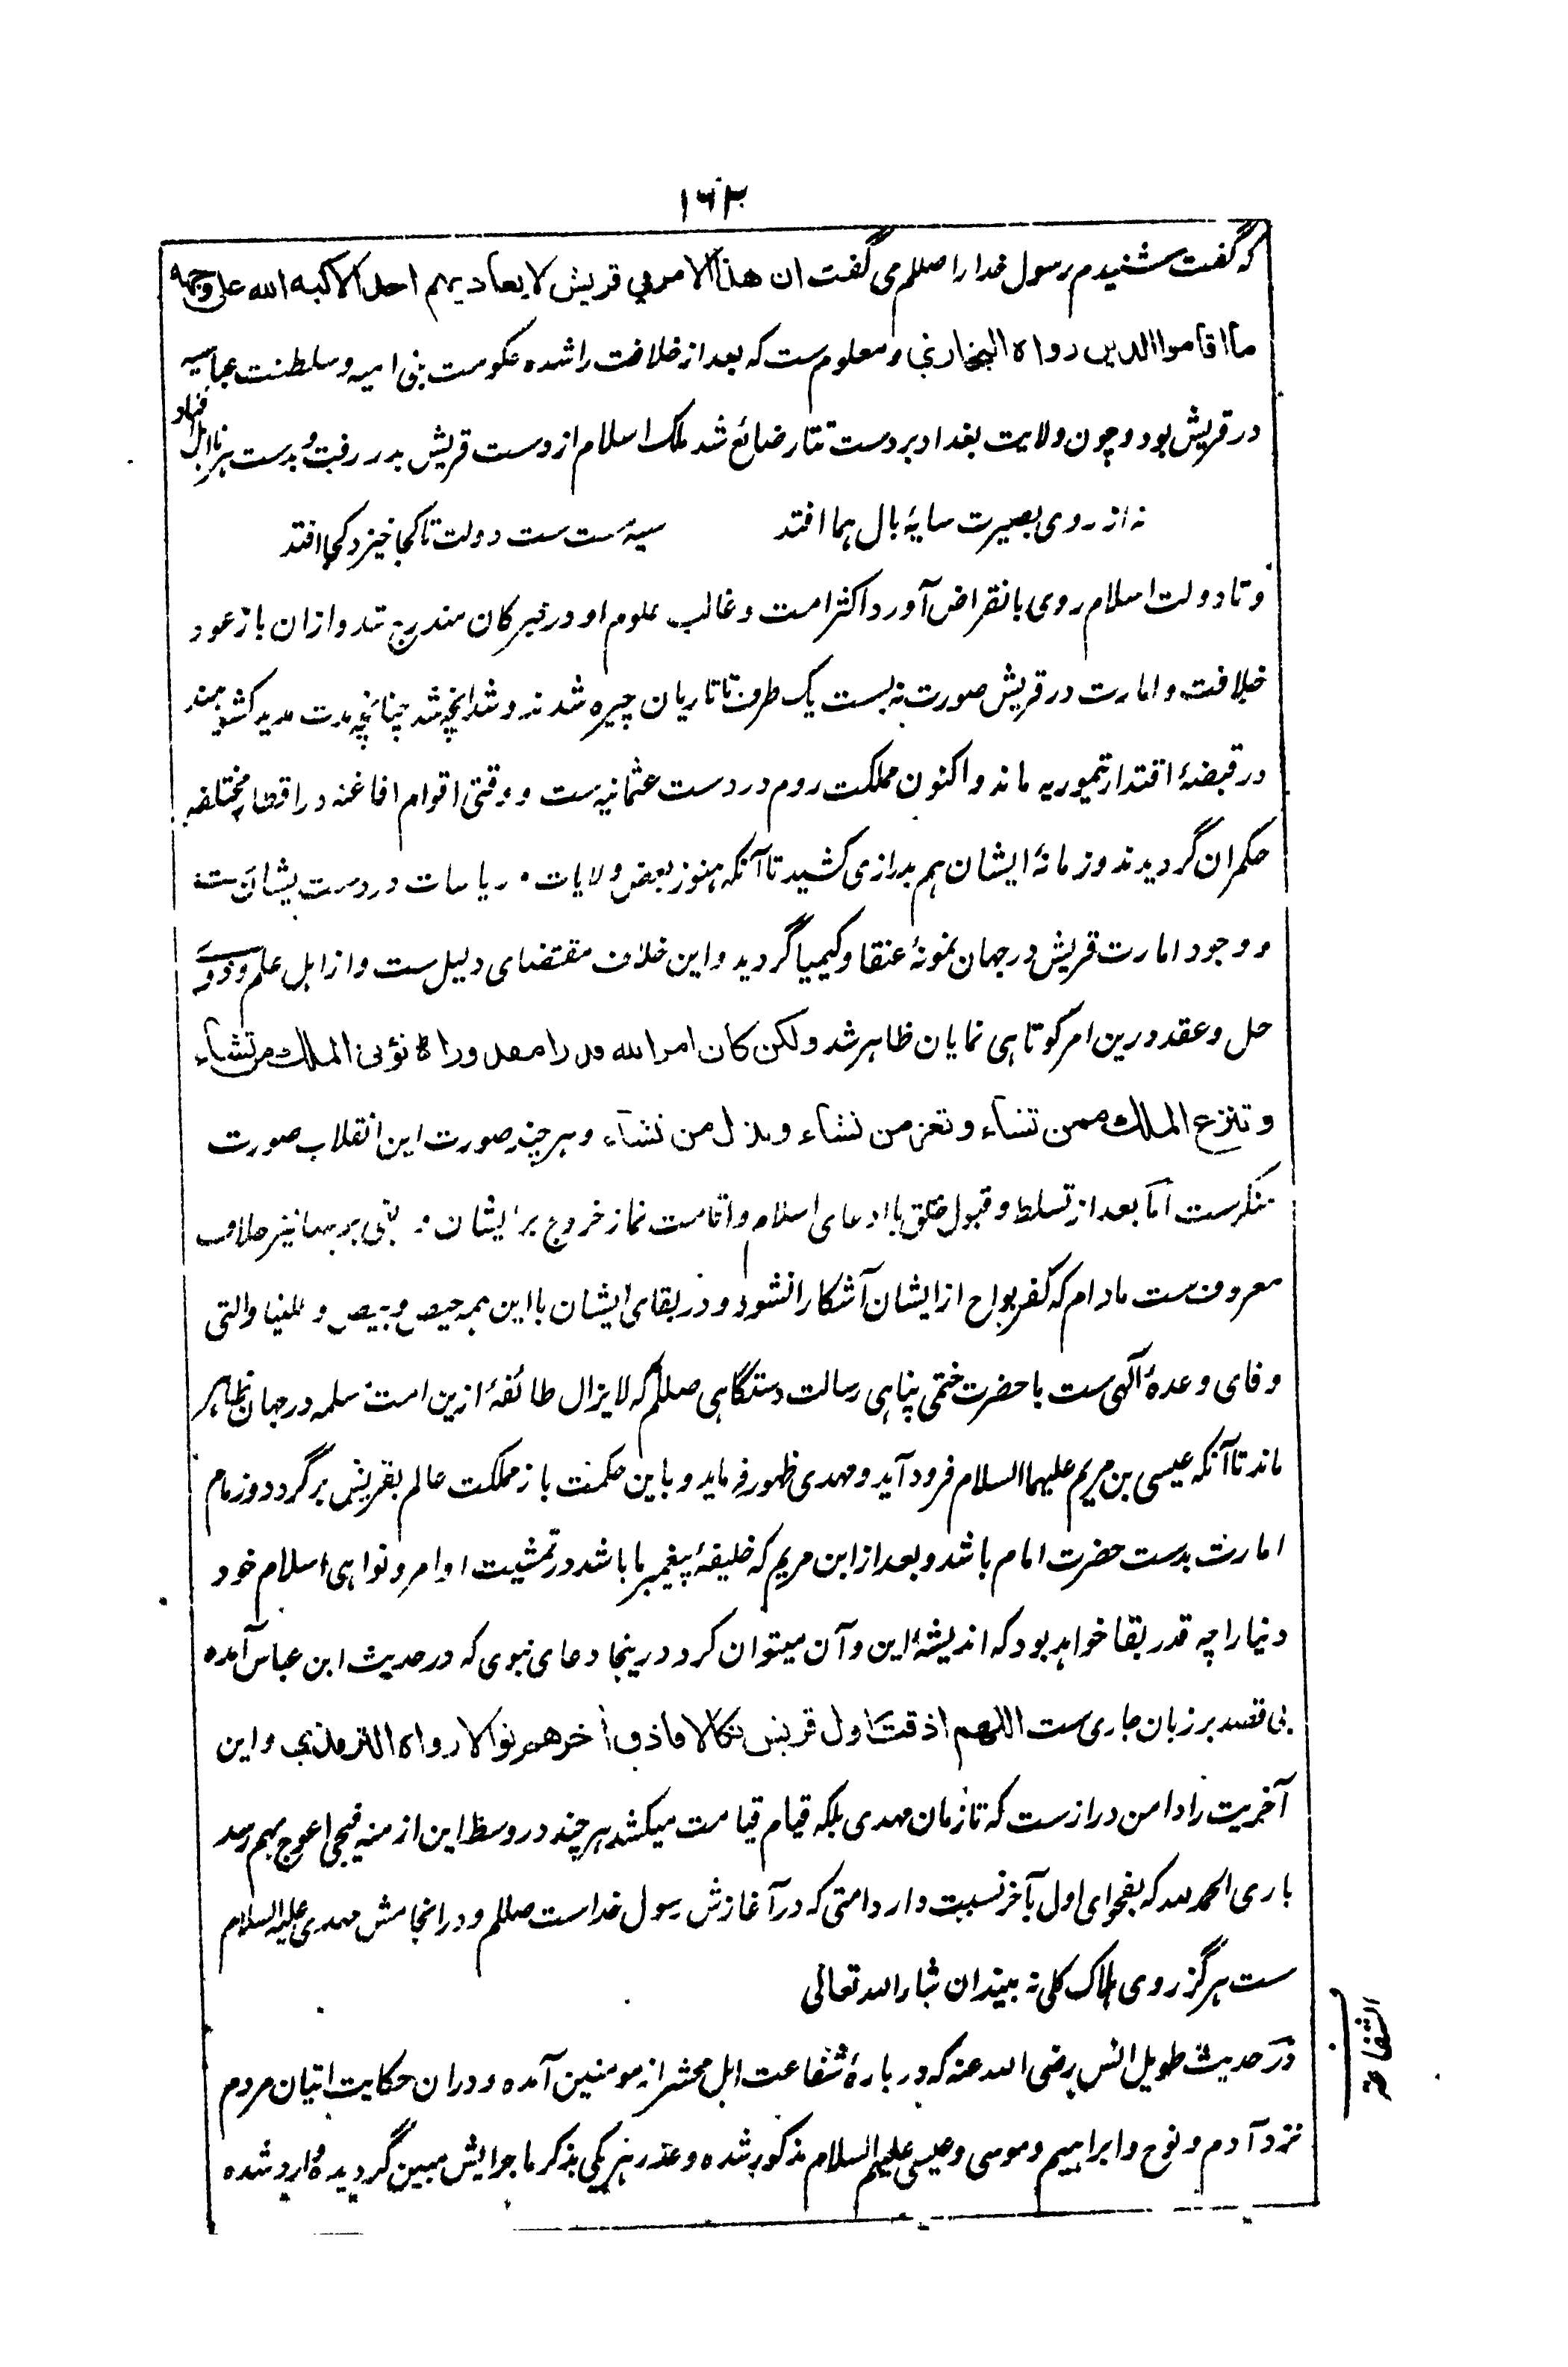 ۱۶۳
که گفت شنیدم رسول خدا را صللم می گفت ان هذا الامر في قریش لا یعادیهم احد الا کبه الله علی وجهه
ما اقاموا الدین رواه البخاري و معلوم ست که بعد از خلافت راشده حکومت بنی امیه و سلطنت عباسیه
در قریش بود و چون ولایت بغداد بر دست تتار ضائع شد ملک اسلام از دست قریش بدر رفت و بدست هر نا اهل افتاد
نه از روی بصیرت سایهٔ بال هما افتد سیه مست ست دولت تا کجا خیزد کجا افتد
و تا دولت اسلام روی بانقراض آورد اکثر امت و غالب علوم او در خبر کان مندرج شد و ازان باز عود
خلافت و امارت در قریش صورت نه بست یک طرف تاتاریان چیره شدند و شد انچه شد چنانچه مدت مدید کشور هند
در قبضهٔ اقتدار تیموریه ماند و اکنون مملکت روم در دست عثمانیه ست و وقتی اقوام افاغنه در اقطار مختلفه
حکمران گردیدند و زمانهٔ ایشان هم بدرازی کشید تا آنکه هنوز بعض ولایات و ریاسات در دست ایشان ست
و وجود امارت قریش در جهان نمونهٔ عنقا و کیمیا گردید و این خلاف مقتضای دلیل ست و از اهل علم و ذوی
حل و عقد درین امر کوتاهی نمایان ظاهر شد ولکن کان امر الله قدرا مقدورا تؤتی الملک من تشاء
و تنزع الملک ممن تشاء و تعز من تشاء و تذل من تشاء و هر چند صورت این انقلاب صورت
منکرست اما بعد از تسلط و قبول خلق با ادعای اسلام و اقامت نماز خروج بر ایشان و بغی بر بهما نیز خلاف
معروف ست مادام که کفر بواح از ایشان آشکارا نشود و در بقای ایشان با این همه حیص و بیص و للتیا والتی
وفای وعدهٔ الٰهی ست با حضرت ختمی پناهی رسالت دستگاهی صللم که لا یزال طائفهٔ ازین امت مسلمه در جهان ظاهر
ماند تا آنکه عیسی بن مریم علیهما السلام فرود آید و مهدی ظهور فرماید و باین حکمت باز مملکت عالم بقریش برگردد و زمام
امارت بدست حضرت امام باشد و بعد از ابن مریم که خلیفهٔ پیغمبر ما باشد در تمشیت اوامر و نواهی اسلام خود
دنیا را چه قدر بقا خواهد بود که اندیشهٔ این و آن میتوان کرد درینجا دعای نبوی که در حدیث ابن عباس آمده
بی قصد بر زبان جاری ست اللهم اذقت اول قریش نکالا فاذق آخرهم نوالا رواه الترمذي و این
آخریت را دامن درازست که تا زمان مهدی بلکه قیام قیامت میکشد هر چند در وسط این ازمنه فیجی اعوج بهم رسد
باری الحمد لله که بفحوای اول بآخر نسبت دارد امتی که در آغازش رسول خداست صللم و در انجامش مهدی علیه السلام
ست هرگز روی هلاک کلی نه بیند ان شاء الله تعالی
در حدیث طویل انس رضی الله عنه که در بارهٔ شفاعت اهل محشر از مومنین آمده و دران حکایت اتیان مردم
نزد آدم و نوح و ابراهیم و موسی و عیسی علیهم السلام مذکور شده و عذر هر یکی بذکر ماجرایش مبین گردیده وارد شده
الشفاعة